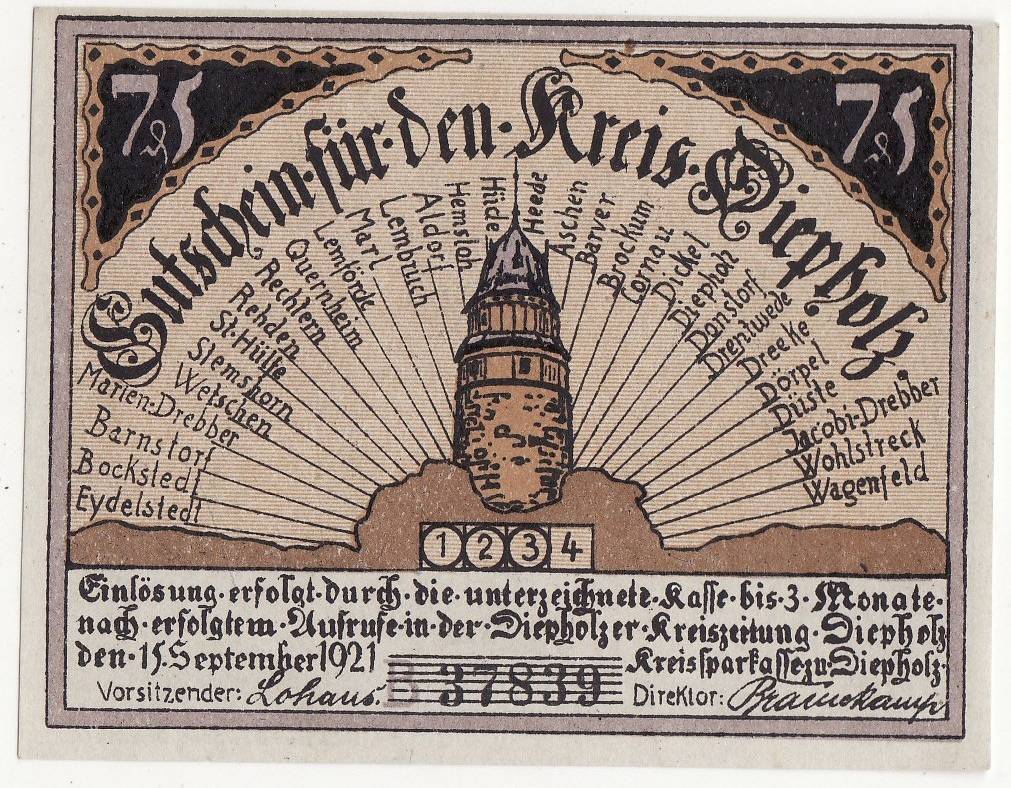 75
75
Gutschein·für·den·Kreis·Diepholz
Eydelstedt
Bockstedt
Barnstorf
Marien-Drebber
Wetschen
Stemshorn
St·Hülfe
Rehden
Rechtern
Quernheim
Lemförde
Marl
Lembruch
Aldorf
Hemsloh
Hüde
Heede
Aschen
Barver
Brockum
Cornau
Dickel
Diepholz
Donstorf
Drentwede
Dreeke
Dörpel
Düste
Jacobi-Drebber
Wohlstreck
Wagenfeld
1 2 3 4
Einlösung·erfolgt·durch·die·unterzeichnete·Kasse·bis·3·Monate·
nach·erfolgtem·Aufrufe·in·der·Diepholzer·Kreiszeitung·Diepholz
den·15.September1921
Kreissparkasse zu·Diepholz·
Vorsitzender: Lohaus.
B 37839
Direktor: